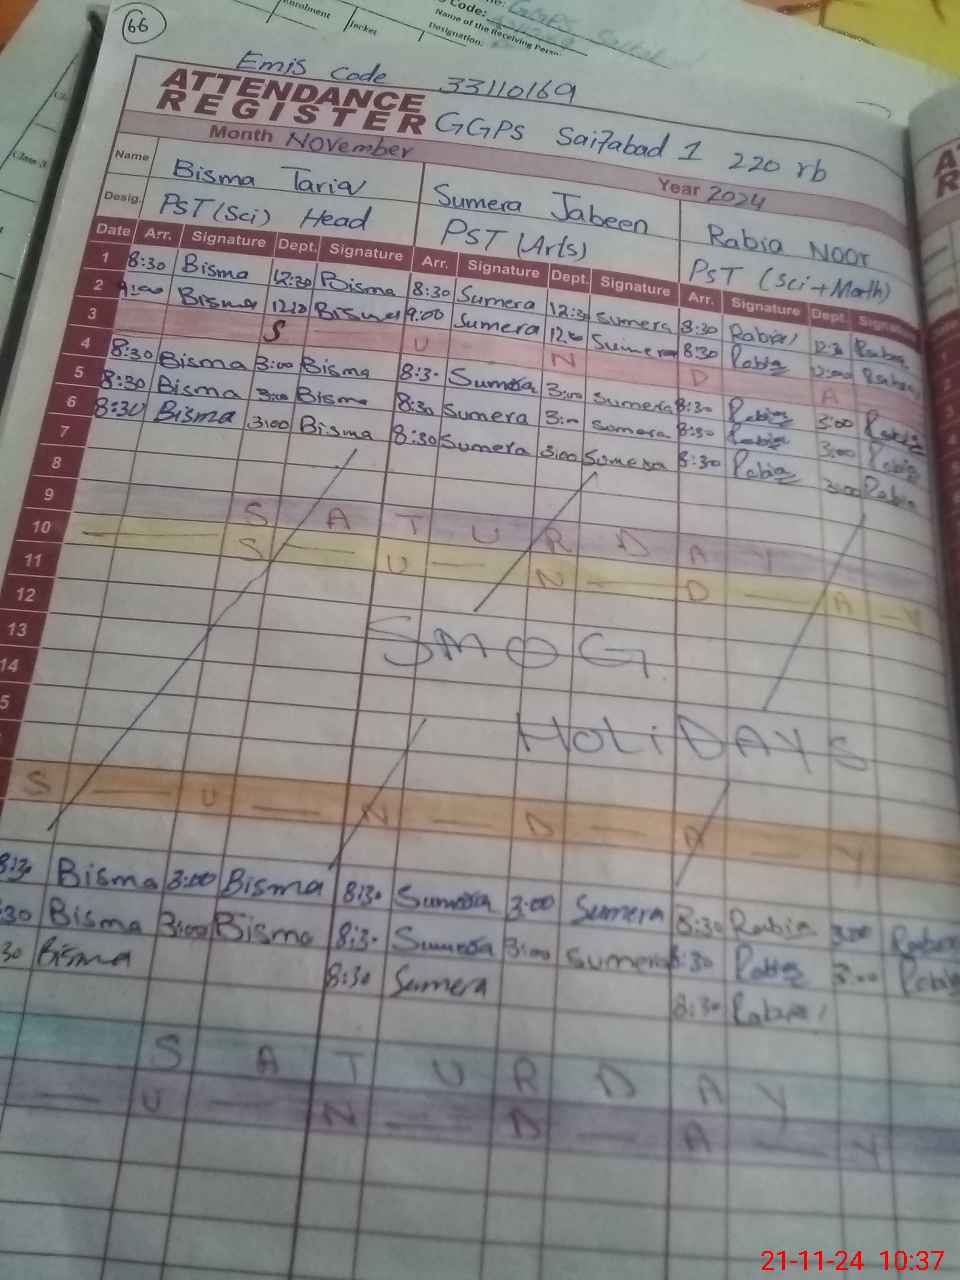 66
Code:
Name of the Receiving Person
Designation:
Enrolment
Jacket
Class 3
Emis Code 33110169
ATTENDANCE
REGISTER
GGPS Saifabad 1 220 rb
Month November
Year 2024
Name Bisma Tariq Sumera Jabeen Rabia Noor
Desig. PST (Sci) Head PST (Arts) PST (Sci + Math)
Date Arr. Signature Dept. Signature Arr. Signature Dept. Signature Arr. Signature Dept. Signature
1 8:30 Bisma 12:30 Bisma 8:30 Sumera 12:30 Sumera 8:30 Rabia 12:30 Rabia
2 9:00 Bisma Bisma 9:00 Sumera Sumera 8:30 Rabia 12:00 Rabia
3 S U N D A
4 8:30 Bisma 3:00 Bisma 8:30 Sumera 3:00 Sumera 8:30 Rabia 3:00 Rabia
5 8:30 Bisma 3:00 Bisma 8:30 Sumera 3:00 Sumera 8:30 Rabia 3:00 Rabia
6 8:30 Bisma 3:00 Bisma 8:30 Sumera 3:00 Sumera 8:30 Rabia 3:00 Rabia
7
8
9 S A T U R D A Y
10 S — U — N — D — A — Y
11
12
13 SMOG
14
5 HOLiDAYS
S — U — N — D — A — Y
8:30 Bisma 3:00 Bisma 8:30 Sumera 3:00 Sumera 8:30 Rabia 3:00 Rabia
:30 Bisma 3:00 Bisma 8:30 Sumera 3:00 Sumera 8:30 Rabia 3:00 Rabia
30 Bisma 8:30 Sumera 8:30 Rabia
S A T U R D A Y
— U — N — D — A — Y
21-11-24 10:37